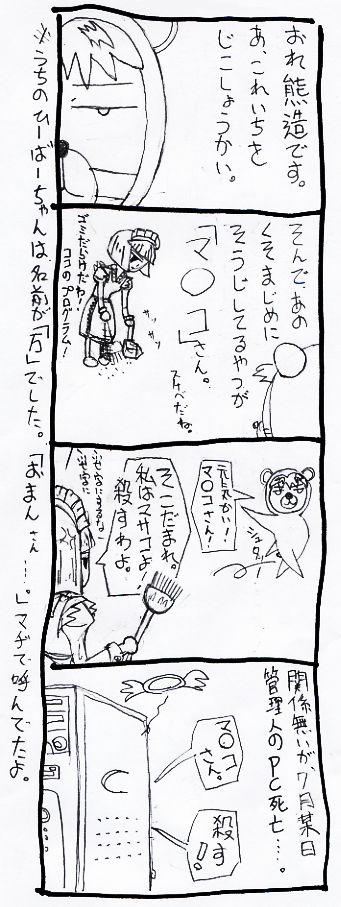 おれ熊造です。
あ、これいちを
じこしょうかい。
そんで、あの
くそまじめに
そうじしてるやつが
「マ〇コ」さん。
スケベだね。
サッ
サッ
ゴミだらけだわ!
ココのプログラム!
元気かい!
マ〇コさん!
シュタ!
そこだまれ。
私はマサコよ。
殺すわよ。
関係無いが、7月某日
管理人のPC死亡…。
マ〇コ
さん。
殺す
!!
※うちのひーばーちゃんは名前が「万」でした。「おまんさん…。」マヂで呼んでたよ。